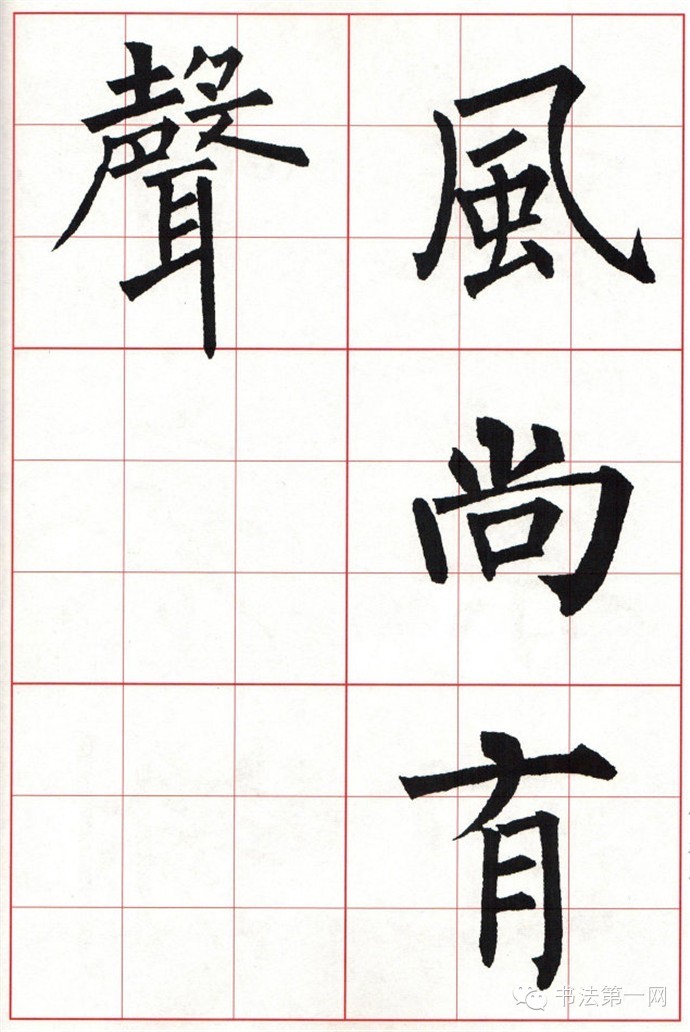 風尚有
聲
书法第一网